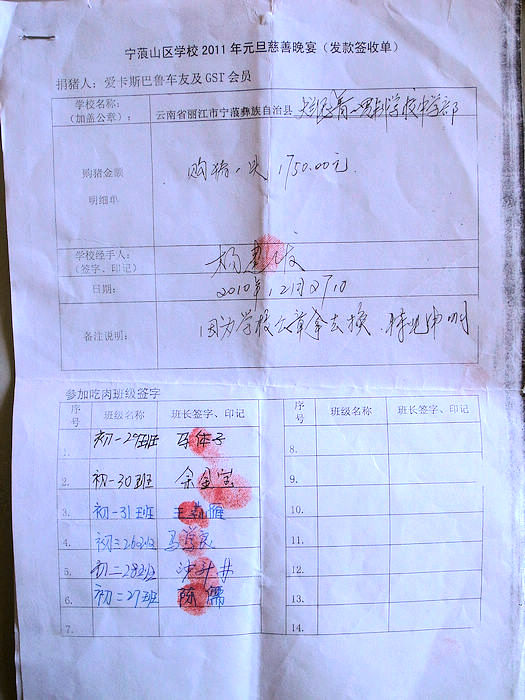 宁蒗山区学校 2011 年元旦慈善晚宴（发款签收单）
捐猪人：爱卡斯巴鲁车友及 GST 会员
学校名称：
（加盖公章）：
云南省丽江市宁蒗彝族自治县
学校中学部
购猪金额
明细单
购猪一头 1750.00元
学校经手人：
（签字、印记）
日期：
2010年12月27日
备注说明：
因为学校公章拿去换.特此申明
参加吃肉班级签字
序号 班级名称 班长签字、印记 序号 班级名称 班长签字、印记
1. 初一29班 8.
2. 初一30班 余金宝 9.
3. 初一31班 10.
4. 初二26班 11.
5. 初二28班 12.
6. 初二27班 陈儒 13.
7. 14.